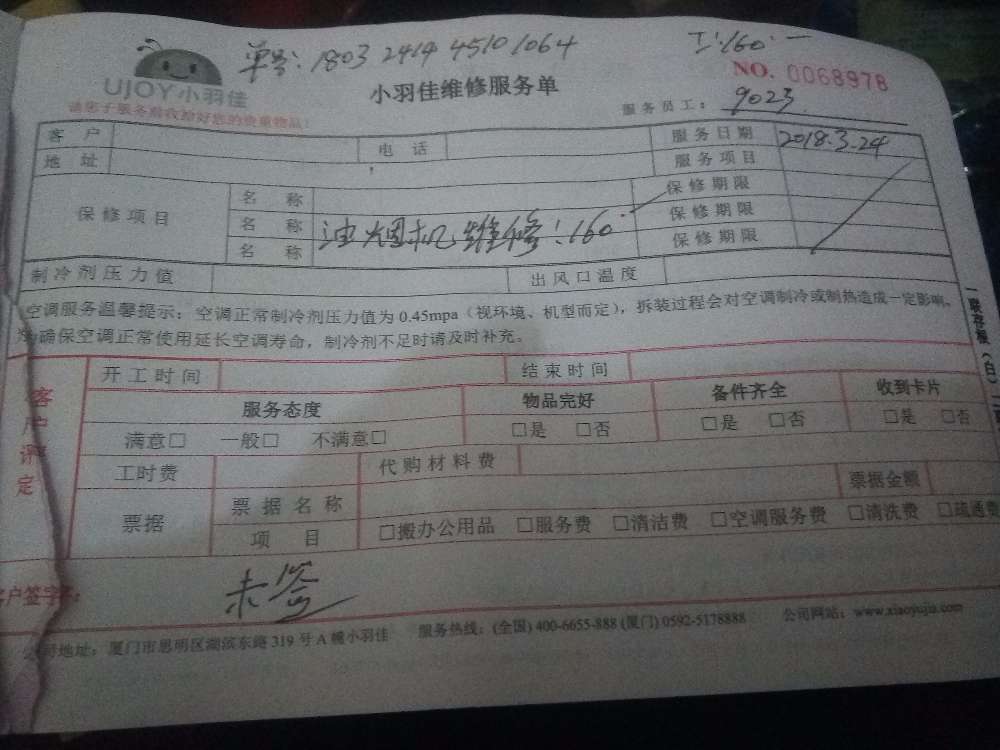 单号: 1803 2414 4510 1064
工:160.一
UJOY小羽佳
小羽佳维修服务单
NO. 0068978
请您于服务前收拾好您的贵重物品!
服务员工: 9023
客户 电话 服务日期 2018.3.24
地址 服务项目
保修项目 名称 保修期限
名称 油烟机维修:160. 保修期限
名称 保修期限
制冷剂压力值 出风口温度
空调服务温馨提示:空调正常制冷剂压力值为 0.45mpa(视环境、机型而定),拆装过程会对空调制冷或制热造成一定影响。
为确保空调正常使用延长空调寿命,制冷剂不足时请及时补充。
一联存根(白)
客户评定
开工时间 结束时间
服务态度 物品完好 备件齐全 收到卡片
满意□ 一般□ 不满意□ □是 □否 □是 □否 □是 □否
工时费 代购材料费
票据 票据名称 票据金额
项目 □搬办公用品 □服务费 □清洁费 □空调服务费 □清洗费 □疏通费
客户签字: 未签
公司地址:厦门市思明区湖滨东路 319 号 A 幢小羽佳 服务热线:(全国) 400-6655-888 (厦门) 0592-5178888 公司网站:www.xiaoyujia.com